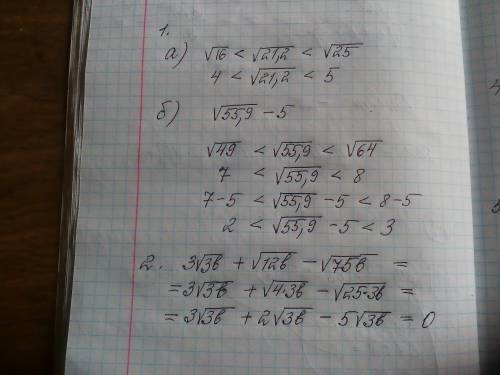 1.
а) √16 < √21,2 < √25
4 < √21,2 < 5
б) √55,9 - 5
√49 < √55,9 < √64
7 < √55,9 < 8
7-5 < √55,9 - 5 < 8-5
2 < √55,9 - 5 < 3
2. 3√3в + √12в - √75в =
=3√3в + √4·3в - √25·3в =
=3√3в + 2√3в - 5√3в = 0